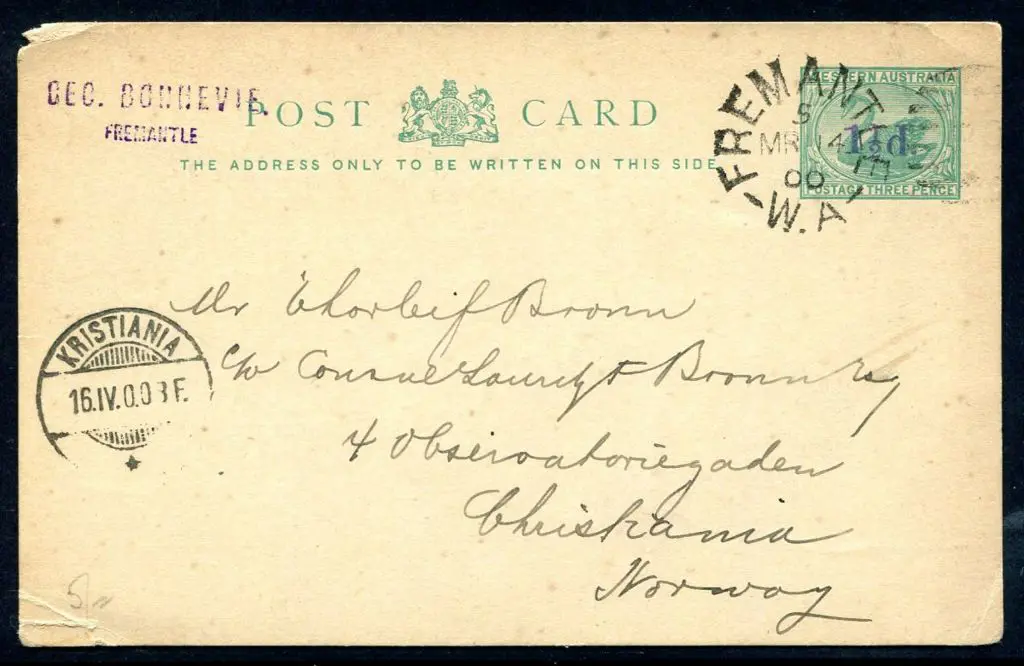 GEO. BONNEVIE.
FREMANTLE
POST CARD
THE ADDRESS ONLY TO BE WRITTEN ON THIS SIDE
WESTERN AUSTRALIA
1½d
POSTAGE THREE PENCE
FREMANTLE
S
MR 14
00
W.A
Mr Thorleif Bronn
c/o Consul Bronn Esq
4 Observatoriegaden
Christiania
Norway
KRISTIANIA
16.IV.00 3 F.